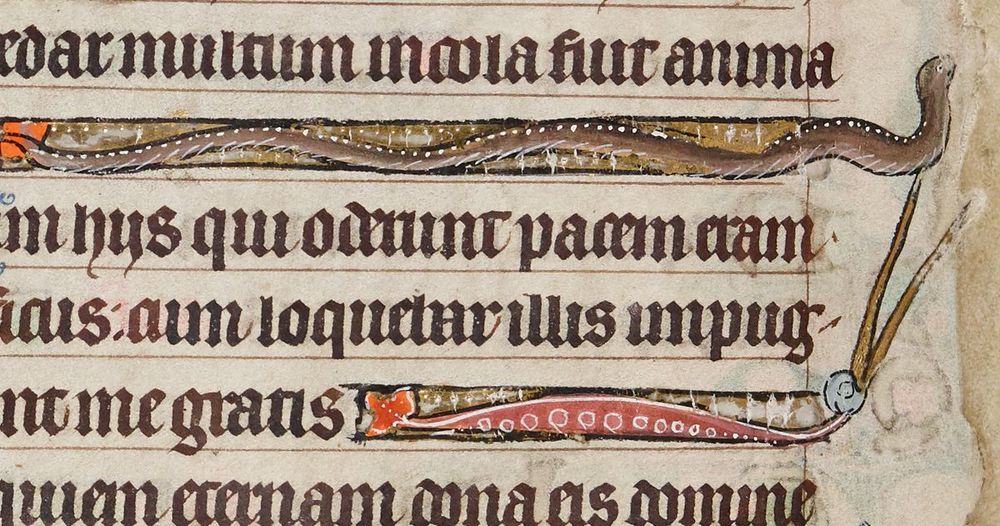 edar multum incola fuit anima
um hiis qui oderunt pacem eram
ficus: cum loquebar illis impug-
nt me gratis
quiem eternam dona eis domine